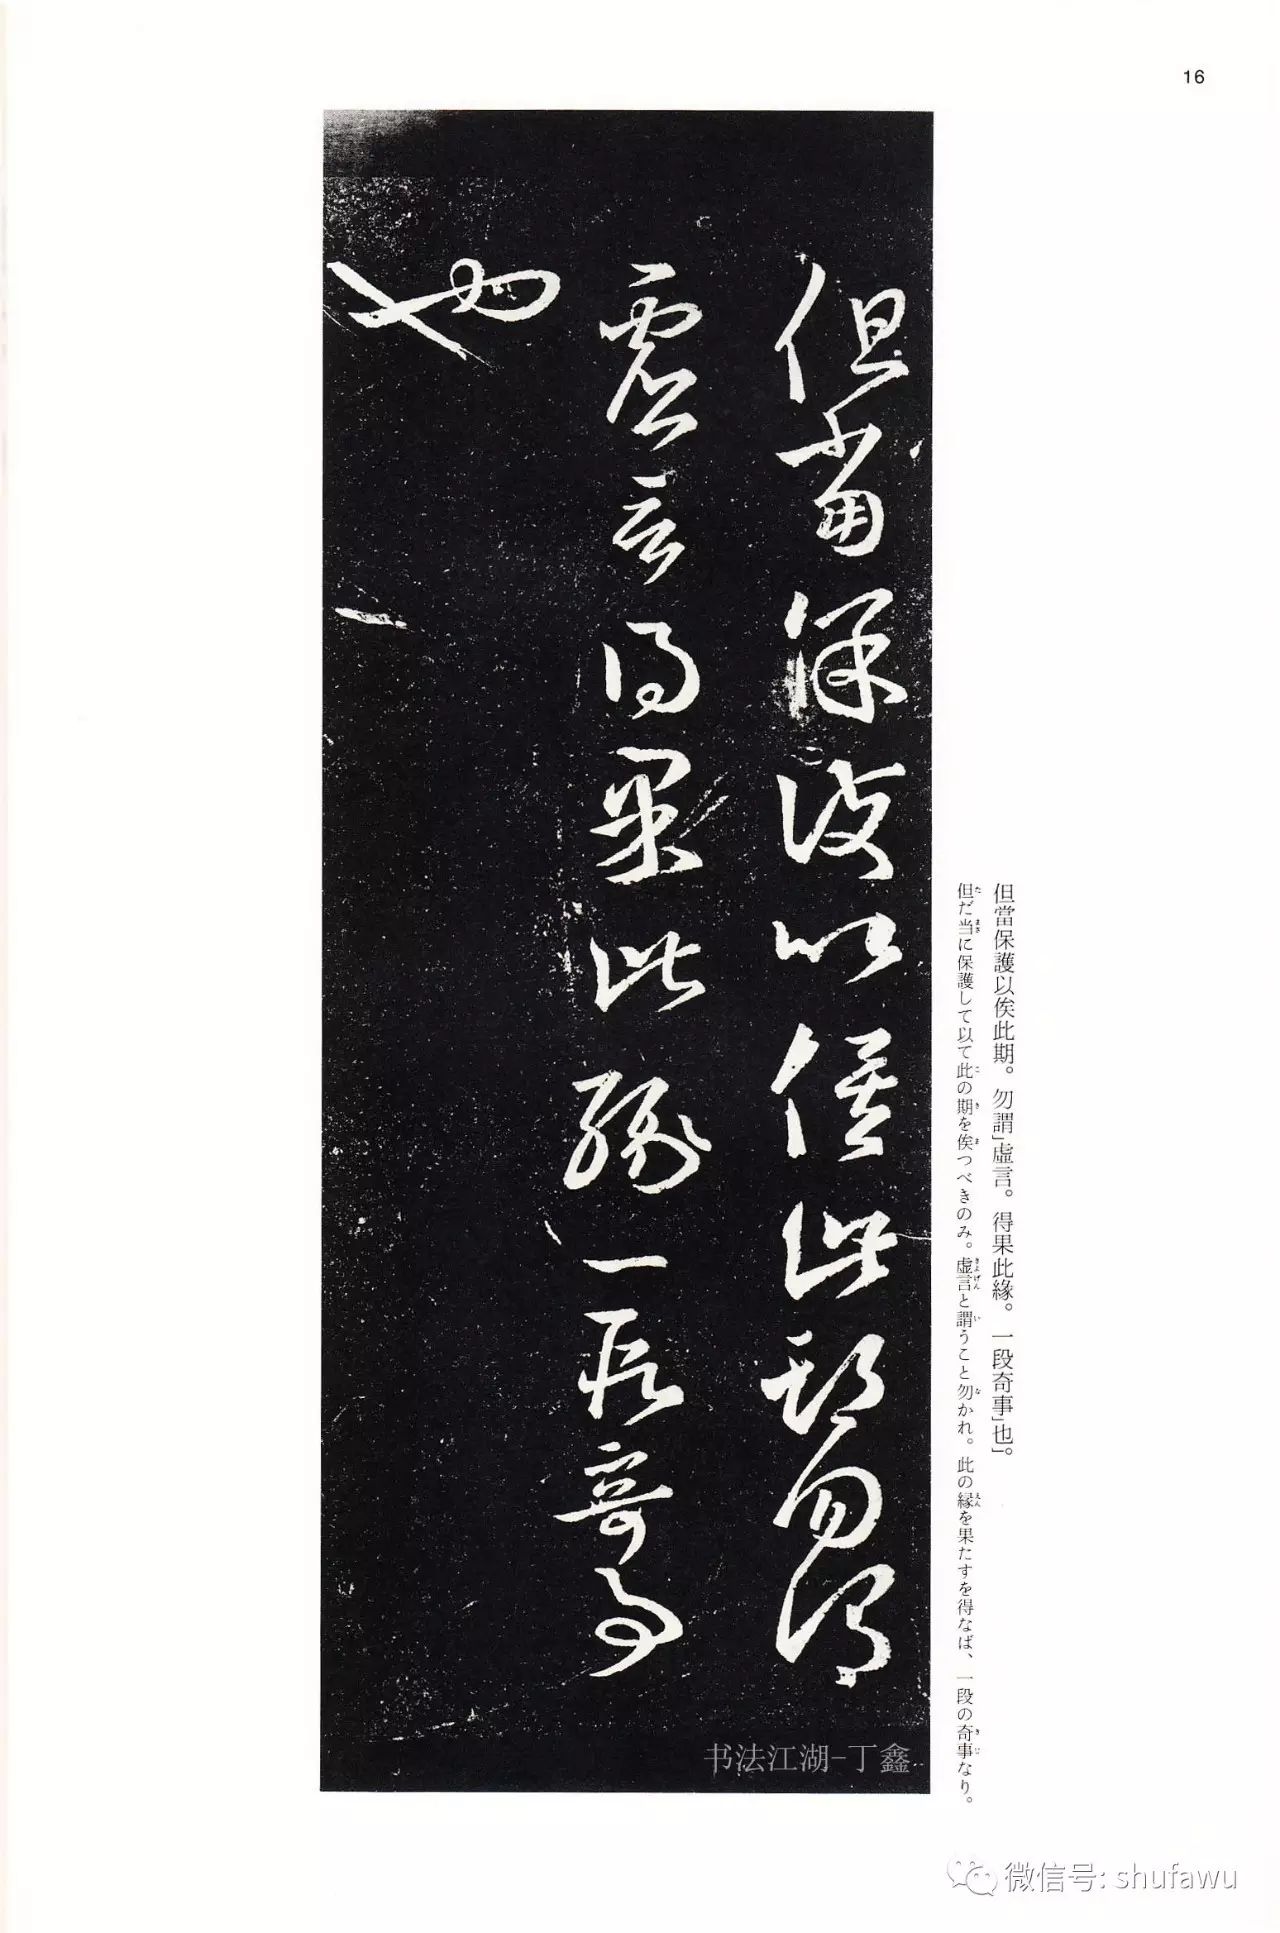 16
但當保護以俟此期勿謂
虛言得果此緣一段奇事
也
但當保護以俟此期。勿謂」虛言。得果此緣。一段奇事」也」。
但だ当に保護して以て此の期を俟つべきのみ。虚言と謂うこと勿かれ。此の縁を果たすを得なば、一段の奇事なり。
书法江湖-丁鑫
微信号: shufawu